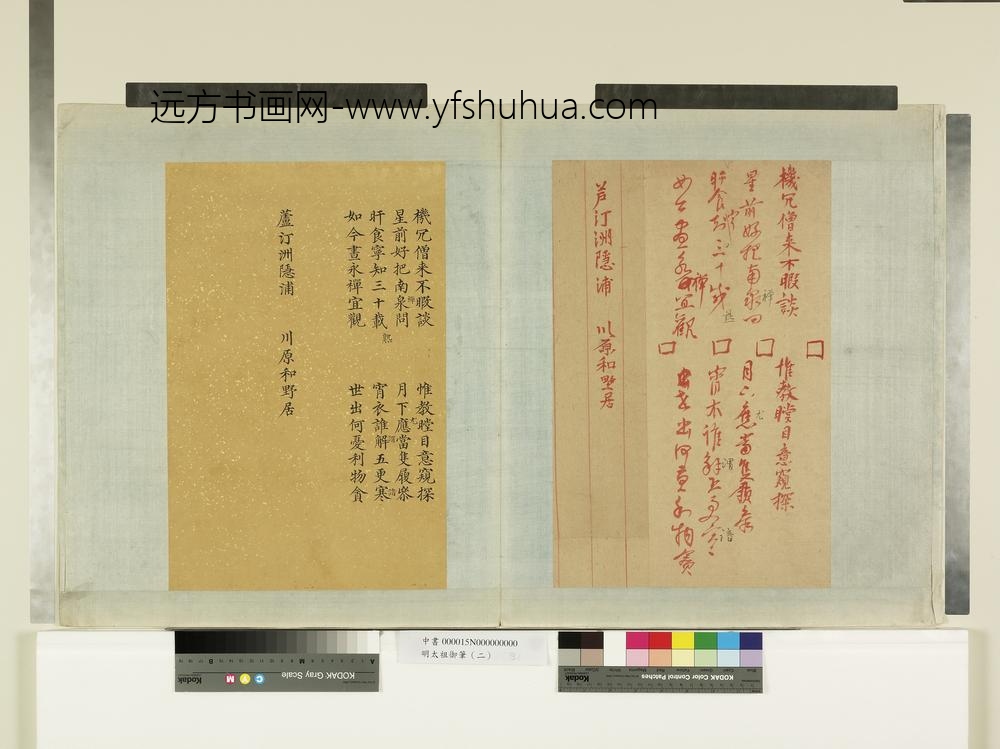 远方书画网-www.yfshuhua.com
機冗僧来不暇談 惟教瞠目意窺探
星前好把南泉問 月下應當隻履叅
旰食寧知三十載 宵衣誰解五更寒
如今晝永禪宜觀 世出何憂利物貪
芦汀洲隱浦 川原和墅居
機冗僧来不暇談 惟教瞠目意窺探
星前好把南泉問 月下應當隻履叅
旰食寧知三十載 宵衣誰解五更寒
如今晝永禪宜觀 世出何憂利物貪
蘆汀洲隱浦 川原和野居
中書 000015N000000000
明太祖御筆（二）
KODAK Gray Scale
C Y M
Kodak
KODAK Color Control Patches
Kodak